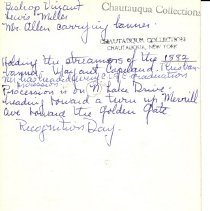 Bishop Vincent
Chautauqua Collections
Lewis Miller
Mr. Allen carrying banner.
CHAUTAUQUA COLLECTION
CHAUTAUQUA, NEW YORK
Holding the streamers of the 1882
banner Margaret Copeland
Procession is on N. Lake Drive,
heading toward a turn up Merrill
Ave toward the Golden Gate
Recognition Day.